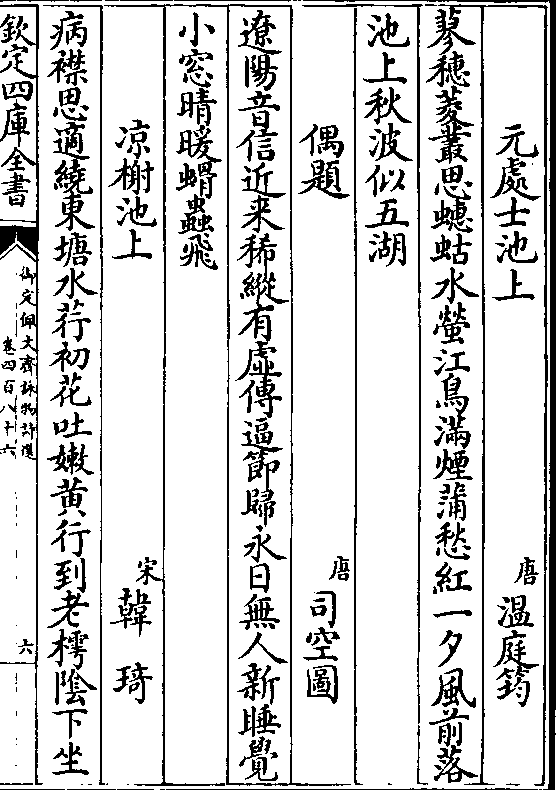 元處士池上 唐 温庭筠
蓼穗菱叢思蟪蛄水螢江鳥滿煙蒲愁紅一夕風前落
池上秋波似五湖
偶題 唐 司空圖
遼陽音信近来稀縱有虚傳逼節歸永日無人新睡覺
小窓晴暖蝟蟲飛
凉榭池上 宋 韓琦
病襟思適繞東塘水荇初花吐嫩黄行到老樗隂下坐
欽定四庫全書
御定佩文齋詠物詩選
卷四百八十六
六